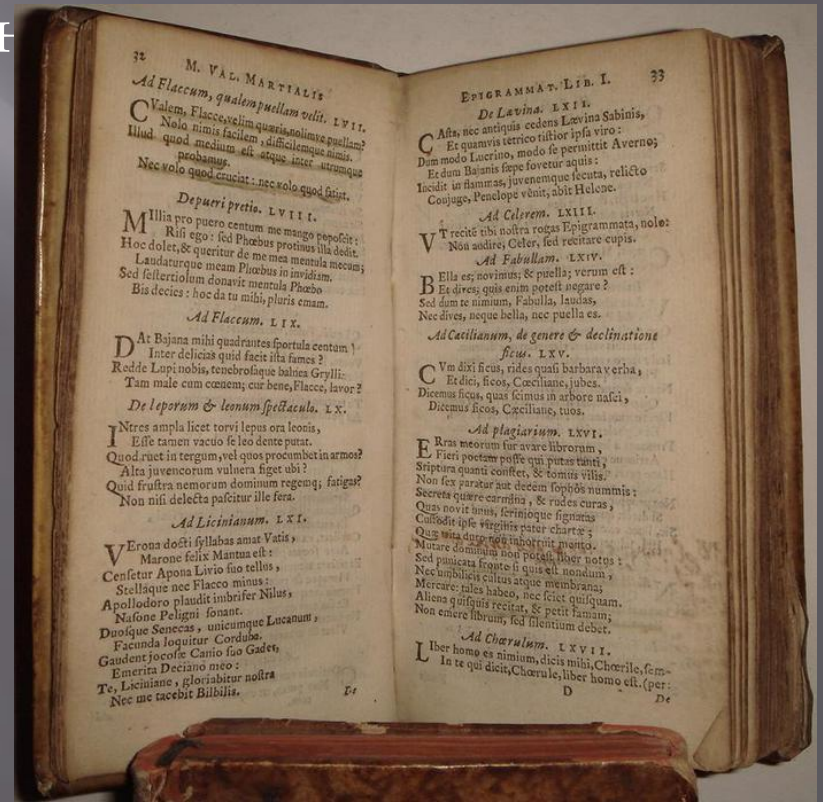 32
M. VAL. MARTIALIS
Ad Flaccum, qualem puellam velit. LVII.
QValem, Flacce, velim quæris, nolimve puellam?
Nolo nimis facilem, difficilemque nimis.
Illud quod medium est atque inter utrumque
probamus.
Nec volo quod cruciat: nec volo quod satiat.
De pueri pretio. LVIII.
MIllia pro puero centum me mango poposcit:
Risi ego: sed Phœbus protinus illa dedit.
Hoc dolet, & queritur de me mea mentula mecum;
Laudaturque meam Phœbus in invidiam.
Sed sestertiolum donavit mentula Phœbo
Bis decies: hoc da tu mihi, pluris emam.
Ad Flaccum. LIX.
DAt Bajana mihi quadrantes sportula centum!
Inter delicias quid facit ista fames?
Redde Lupi nobis, tenebrosaque balnea Grylli:
Tam male cum cœnem; cur bene, Flacce, lavor?
De leporum & leonum spectaculo. LX.
INtres ampla licet torvi lepus ora leonis,
Esse tamen vacuo se leo dente putat.
Quod ruet in tergum, vel quos procumbet in armos?
Alta juvencorum vulnera figet ubi?
Quid frustra nemorum dominum regemq; fatigas?
Non nisi delecta pascitur ille fera.
Ad Licinianum. LXI.
VErona docti syllabas amat Vatis,
Marone felix Mantua est:
Censetur Apona Livio suo tellus,
Stellaque nec Flacco minus:
Apollodoro plaudit imbrifer Nilus,
Nasone Peligni sonant.
Duosque Senecas, unicumque Lucanum,
Facunda loquitur Corduba.
Gaudent jocosæ Canio suo Gades,
Emerita Deciano meo:
Te, Liciniane, gloriabitur nostra
Nec me tacebit Bilbilis.
De
EPIGRAMMAT. LIB. I. 33
De Lævina. LXII.
CAsta, nec antiquis cedens Lævina Sabinis,
Et quamvis tetrico tristior ipsa viro:
Dum modo Lucrino, modo se permittit Averno;
Et dum Bajanis sæpe fovetur aquis:
Incidit in flammas, juvenemque secuta, relicto
Conjuge, Penelope venit, abit Helene.
Ad Celerem. LXIII.
VT recitē tibi nostra rogas Epigrammata, nolo:
Non audire, Celer, sed recitare cupis.
Ad Fabullam. LXIV.
BElla es; novimus; & puella; verum est:
Et dives; quis enim potest negare?
Sed dum te nimium, Fabulla, laudas,
Nec dives, neque bella, nec puella es.
Ad Cæcilianum, de genere & declinatione
ficus. LXV.
CVm dixi ficus, rides quasi barbara verba,
Et dici, ficos, Cæciliane, jubes.
Dicemus ficus, quas scimus in arbore nasci,
Dicemus ficos, Cæciliane, tuos.
Ad plagiarium. LXVI.
ERras meorum fur avare librorum,
Fieri poetam posse qui putas tanti,
Scriptura quanti constet, & tomus vilis.
Non sex paratur aut decem sophôs nummis:
Secreta quære carmina, & rudes curas,
Quas novit unus, scrinioque signatas
Custodit ipse virginis pater chartæ;
Quæ trita duro non inhorruit mento.
Mutare dominum non potest liber notus:
Sed pumicata fronte si quis est nondum,
Nec umbilicis cultus atque membrana;
Mercare: tales habeo, nec sciet quisquam.
Aliena quisquis recitat, & petit famam;
Non emere librum, sed silentium debet.
Ad Chœrulum. LXVII.
LIber homo es nimium, dicis mihi, Chœrile, sem-
In te qui dicit, Chœrule, liber homo est. (per:
D De